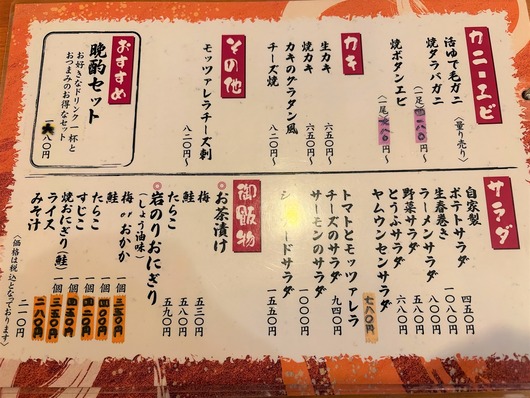 カニ・エビ
活ゆで毛ガニ
(量り売り)
焼タラバガニ
焼ボタンエビ
カキ
生カキ 六五〇円〜
焼カキ 六五〇円〜
カキのグラタン風
チーズ焼 八二〇円〜
その他
モッツァレラチーズ刺 八二〇円〜
おすすめ
晩酌セット
お好きなドリンク一杯と
おつまみのお得なセット
サラダ
自家製
ポテトサラダ 四五〇円
生春巻き 一〇八〇円
ラーメンサラダ 八〇〇円
野菜サラダ 五五〇円
とうふサラダ 六八〇円
ヤムウンセンサラダ 七八〇円
トマトとモッツァレラ
チーズのサラダ 九四〇円
サーモンのサラダ 一〇〇〇円
サラダ 一五五〇円
御飯物
お茶漬け
梅 五三〇円
鮭 五八〇円
たらこ 五九〇円
岩のりおにぎり
(しょう油味)
梅orおかか 一個 三五〇円
鮭 一個 四〇〇円
たらこ 一個 四二〇円
すじこ 一個 四五〇円
焼おにぎり(鮭) 一個 三五〇円
ライス 二八〇円
みそ汁 二一〇円
(価格は税込となっております)